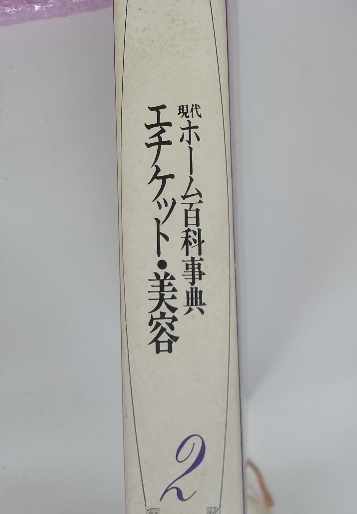 現代
ホーム百科事典
エチケット・美容
2